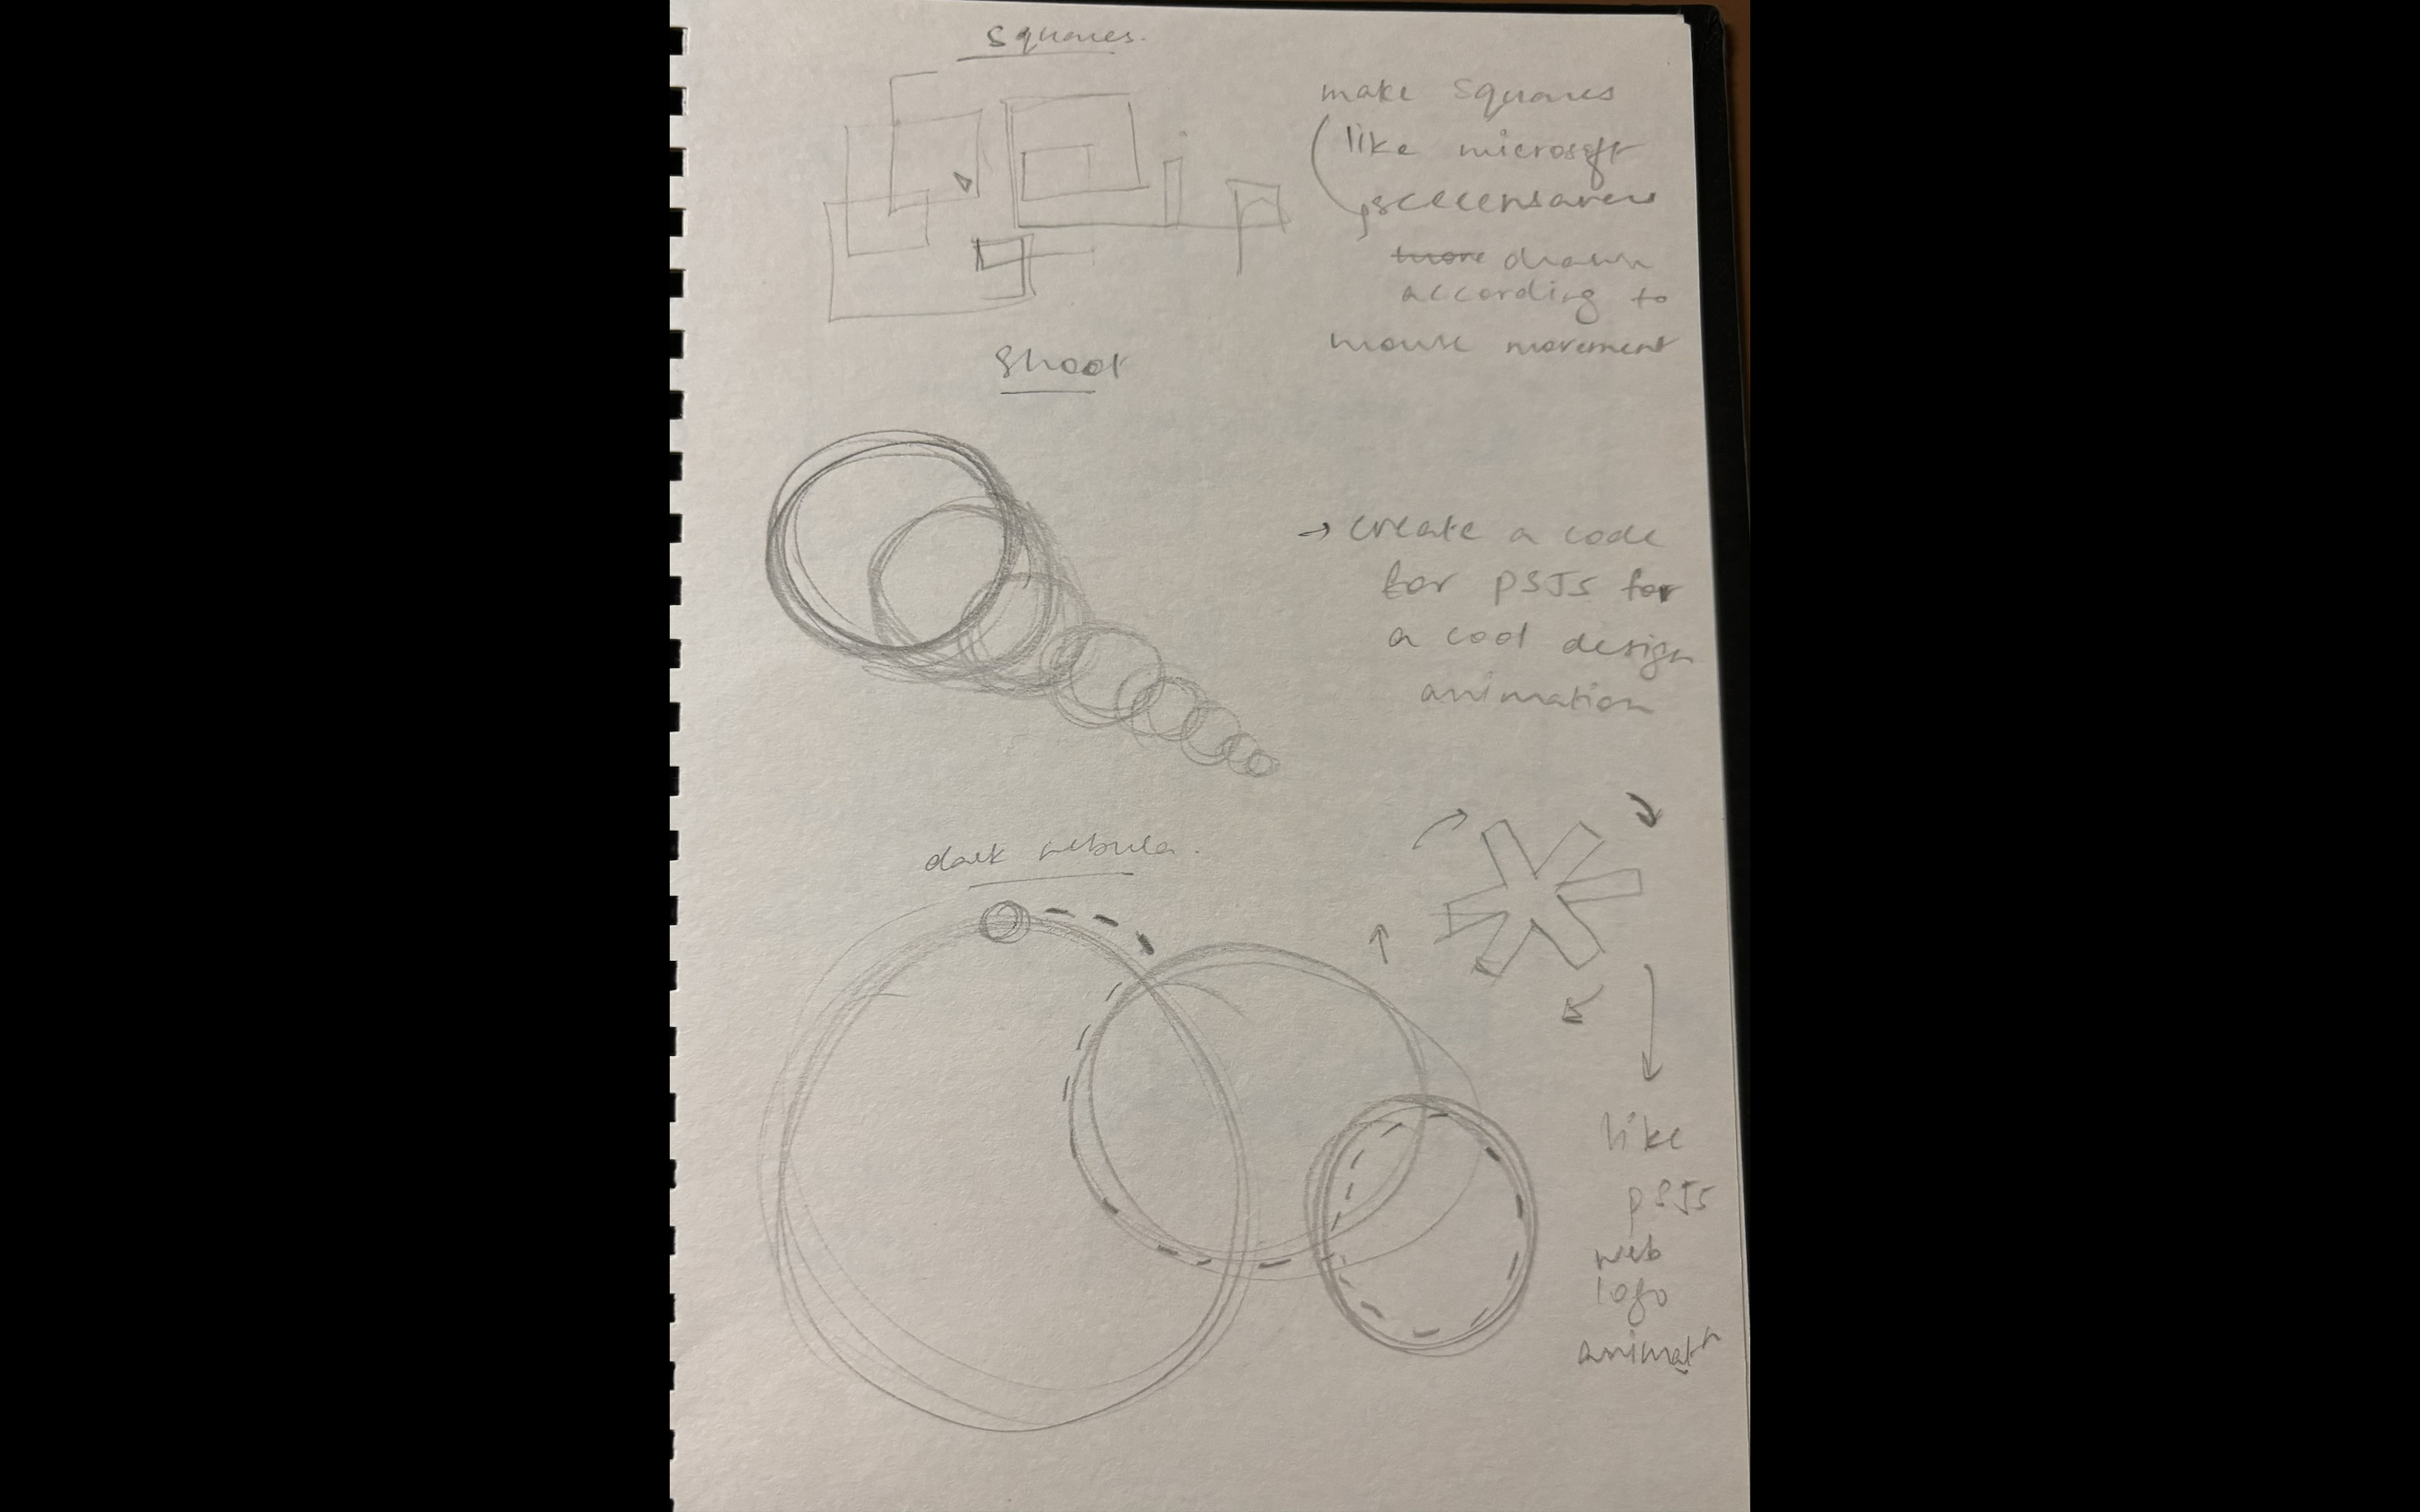 squares.
make squares
like microsoft
screensavers
more drawn
according to
mouse movement
Shoot
→ create a code
for p5Js for
a cool design
animation
dark nebula.
like
p5Js
web
logo
animatn